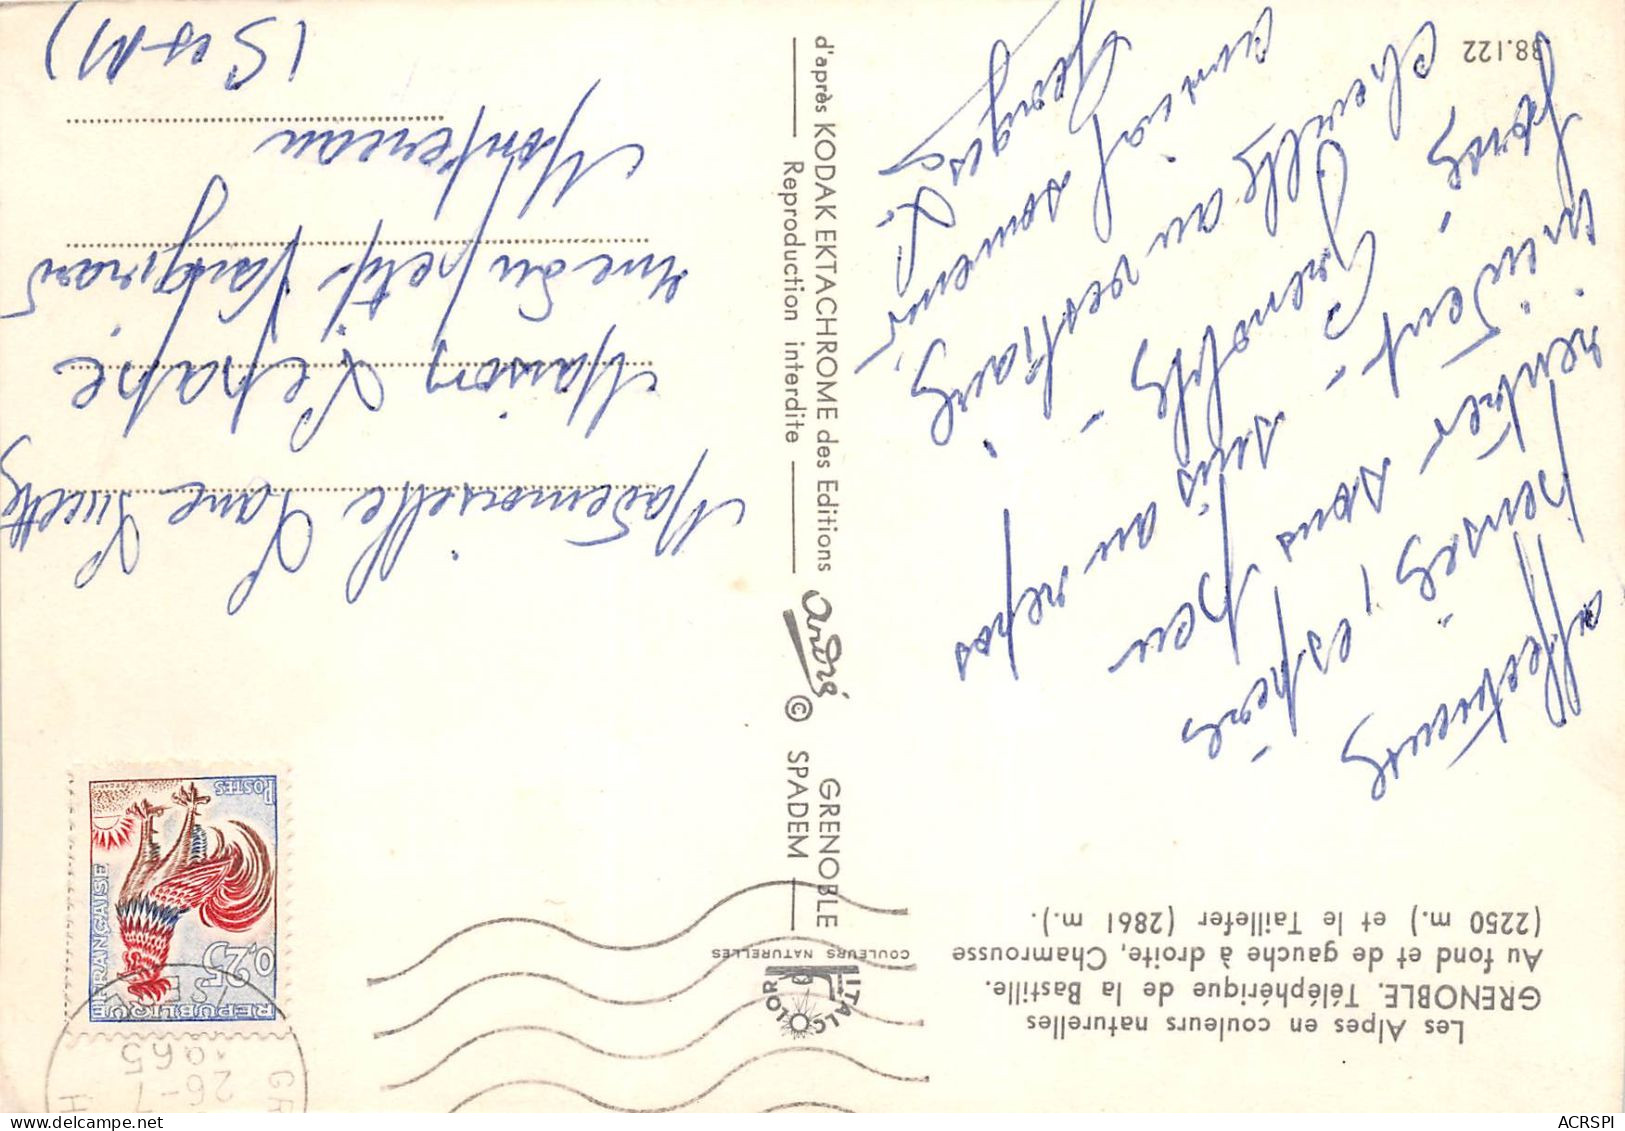 Les Alpes en couleurs naturelles
GRENOBLE. Téléphérique de la Bastille.
Au fond et de gauche à droite, Chamrousse
(2250 m.) et le Taillefer (2861 m.).
affectueuses
pensées, espère
rentrer sous peu
suis au repos
forcé,
cheville
Grenoble -
au vestiaire,
amical souvenir
Georges
L.
38.122
COULEURS NATURELLES
ITALCOLOR
d'après KODAK EKTACHROME des Editions andré GRENOBLE
Reproduction interdite © SPADEM
REPUBLIQUE FRANÇAISE
0,25
POSTES
26-7
1965
ISERE
Mademoiselle Lane Lucette
Maison Lepape
rue du petit Vaugirard
Montereau
(S et M)
ACRSPI